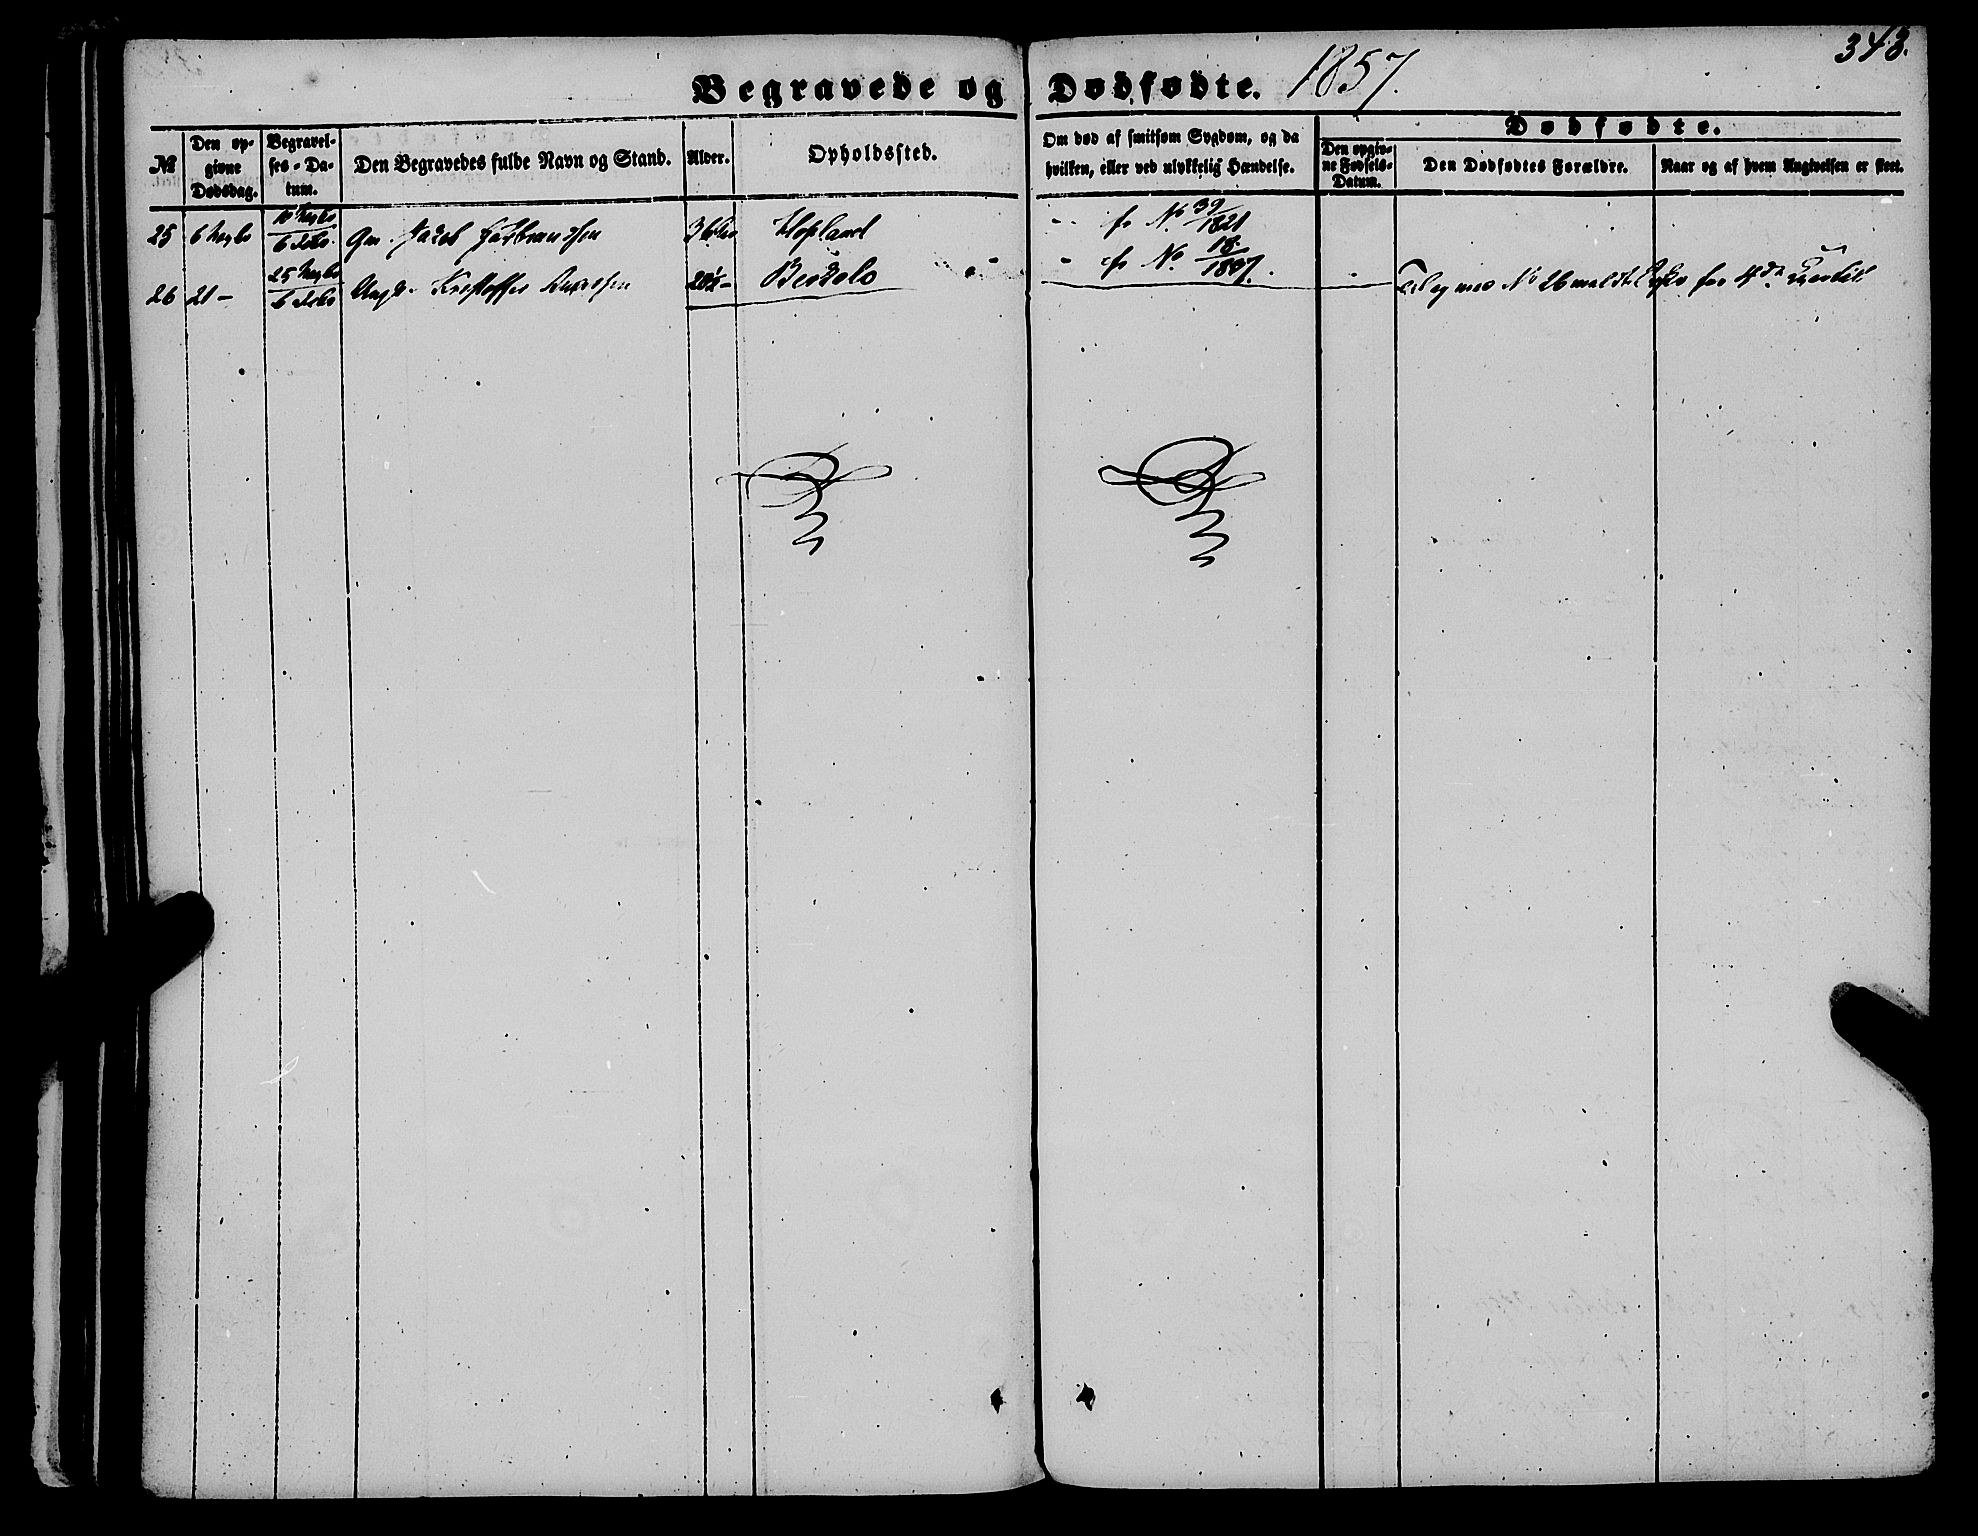 343.
Begravede og Dødfødte. 1857.
№
Den opgivne Dødsdag.
Begravelses-Datum.
Den Begravedes fulde Navn og Stand.
Alder.
Opholdssted.
Om død af smitsom Sygdom, og da hvilken, eller ved ulykkelig Hændelse.
Dødfødte.
Den opgivne Fødsels-Datum.
Den Dødfødtes Forældre.
Naar og af hvem Angivelsen er skeet.
25 6 Novbr 10 Novbr 6 Decbr Gm. Jacob 36 Hopland - - cfr No. 39/1821
26 21 - 25 Novbr 6 Decbr Ungk. Kristoffer 20½ - - cfr No. 18/1837. -
No 26 for 4de